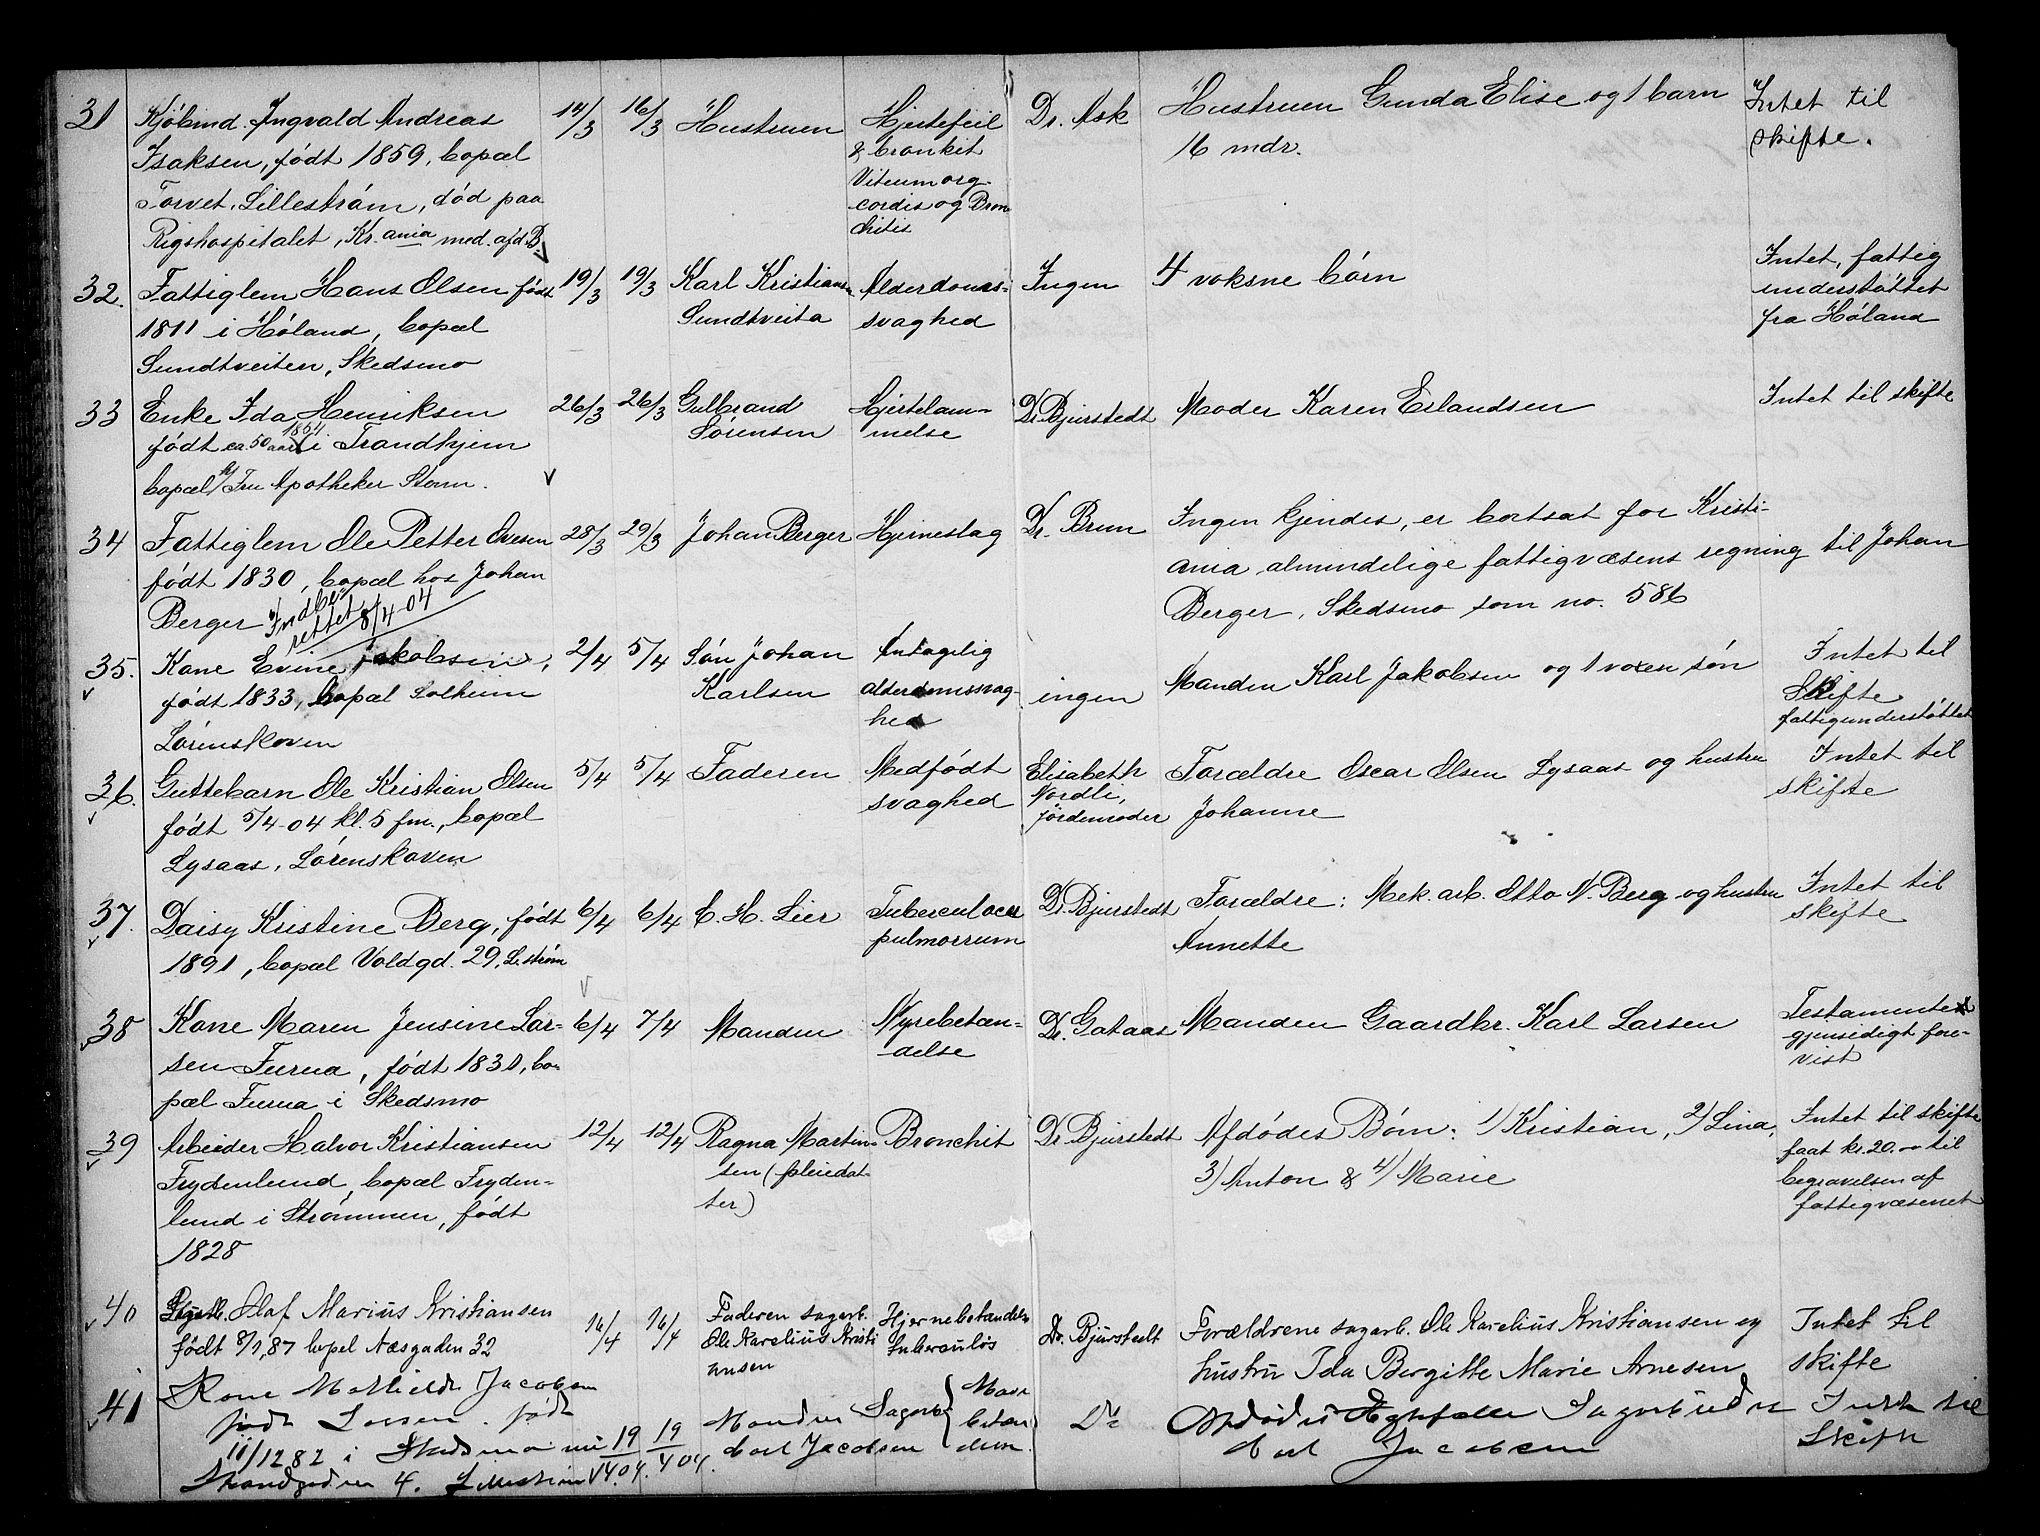 31
Kjøbmd. Ingvald Andreas
Isaksen, født 1859, bopæl
Torvet, Lillestrøm, død paa
Rigshospitalet, Kr.ania med. afd. B.
14/3
16/3
Hustruen
Hjertefeil
& bronkit
Vitium org.
cordis og Bron
chitis
Dr. Ask
Hustruen Gunda Elise og 1 barn
16 mdr.
Intet til
skifte.
32.
Fattiglem Hans Olsen født
1811 i Høland, bopæl
Sundtveiten, Skedsmo
19/3
19/3
Karl Kristiansen
Sundtveita
Alderdoms-
svaghed
Ingen
4 voksne børn
Intet, fattig
understøttet
fra Høland
33
Enke Ida Henriksen
født ca. 50 aar 1854 i Trondhjem
bopæl h/ Fru Apotheker Storm.
26/3
26/3
Gulbrand
Sørensen
Hjertelam-
melse
Dr. Bjurstedt
Moder Karen Erlandsen
Intet til skifte
34
Fattiglem Ole Petter Ovesen
født 1830, bopæl hos Johan
Berger
Indbe-
rettet
8/4-04
28/3
29/3
Johan Berger
Hjerneslag
Dr. Brun
Ingen kjendes, er bortsat for Kristi-
ania almindelige fattigvæsens regning til Johan
Berger, Skedsmo som no. 586
35.
Kone Evine Jakobsen,
født 1833, bopæl Solheim
Lørenskoven
2/4
5/4
Søn Johan
Karlsen
Antagelig
alderdomssvag-
hed
ingen
Manden Karl Jakobsen og 1 voxen søn
Intet til
Skifte
fattigunderstøttet
36.
Guttebarn Ole Kristian Olsen
født 5/4-04 kl. 5 fm., bopæl
Lysaas, Lørenskoven
5/4
5/4
Faderen
Medfødt
svaghed
Elisabeth
Nordli,
jordemoder
Forældre Oscar Olsen Lysaas og hustru
Johanne
Intet til
skifte
37.
Daisy Kristine Berg, født
1891, bopæl Voldgd. 29, L.strøm
6/4
6/4
C. H. Lier
Tuberculose
pulmorrum
Dr. Bjurstedt
Forældre: Mek. arb. Otto N. Berg og hustru
Annette
Intet til
skifte
38
Kone Maren Jensine Lar-
sen Furua, født 1830, bo-
pæl Furua i Skedsmo
6/4
7/4
Manden
Nyrebetæn-
delse
Dr. Gotaas
Manden Gaardbr. Karl Larsen
Testamente
gjensidigt fore-
vist
39
Arbeider Halvor Kristiansen
Frydenlund, bopæl Fryden-
lund i Strømmen, født
1828
12/4
12/4
Ragna Martin-
sen (pleiedat-
ter)
Bronchit
Dr. Bjurstedt
Afdødes Børn: 1) Kristian, 2) Lina,
3) Anton & 4) Marie
Intet til skifte
faat kr. 20.00 til
begravelsen af
fattigvæsenet
40
Olaf Marius Kristiansen
født 8/1,87 bopel Næsgaden 32
16/4
16/4
Faderen sagarb.
Ole Karelius Kristi
ansen
Hjernebetændelse
tuberculøs
Dr. Bjurstedt
Forældrene sagarb. Ole Karelius Kristiansen og
hustru Ida Bergitte Marie Arnesen
Intet til
skifte
41
Kone Mathilde Jacobsen
født Larsen. født
11/12 82 i Skedsmo
Strandgaden 4. Lillestrøm
19/4 04.
19/4 04.
Manden Sagarb.
Carl Jacobsen
Dr.
Afdødes Ægtefælle Sagarbeider
Carl Jacobsen
Intet til
Skifte